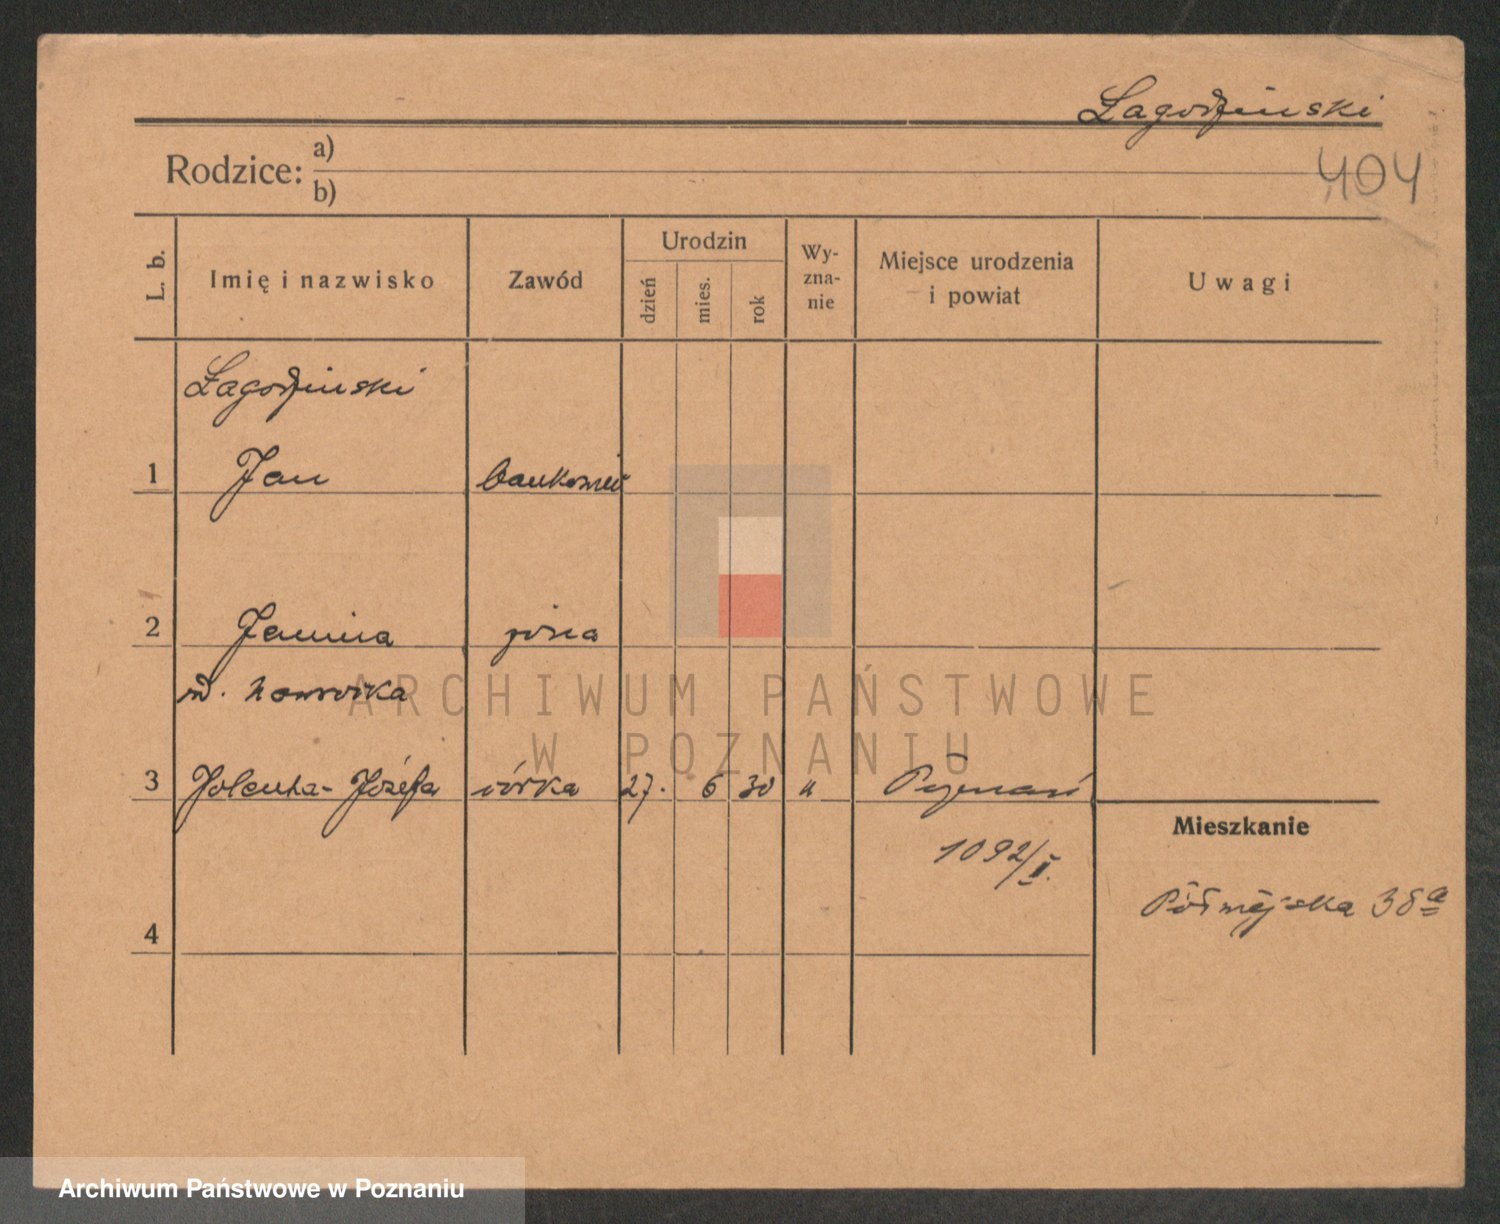 Łagodzinski
404
Rodzice: a)
b)
L. b.
Imię i nazwisko
Zawód
Urodzin
dzień
mies.
rok
Wy-
zna-
nie
Miejsce urodzenia
i powiat
Uwagi
Łagodzinski
1 Jan bankowiec
2 Janina żona
ARCHIWUM PAŃSTWOWE
W POZNANIU
3 Jolenta-Józefa córka 27. 6 30 " Poznań
Mieszkanie
1092/II.
Półwiejska 38a
4
Archiwum Państwowe w Poznaniu